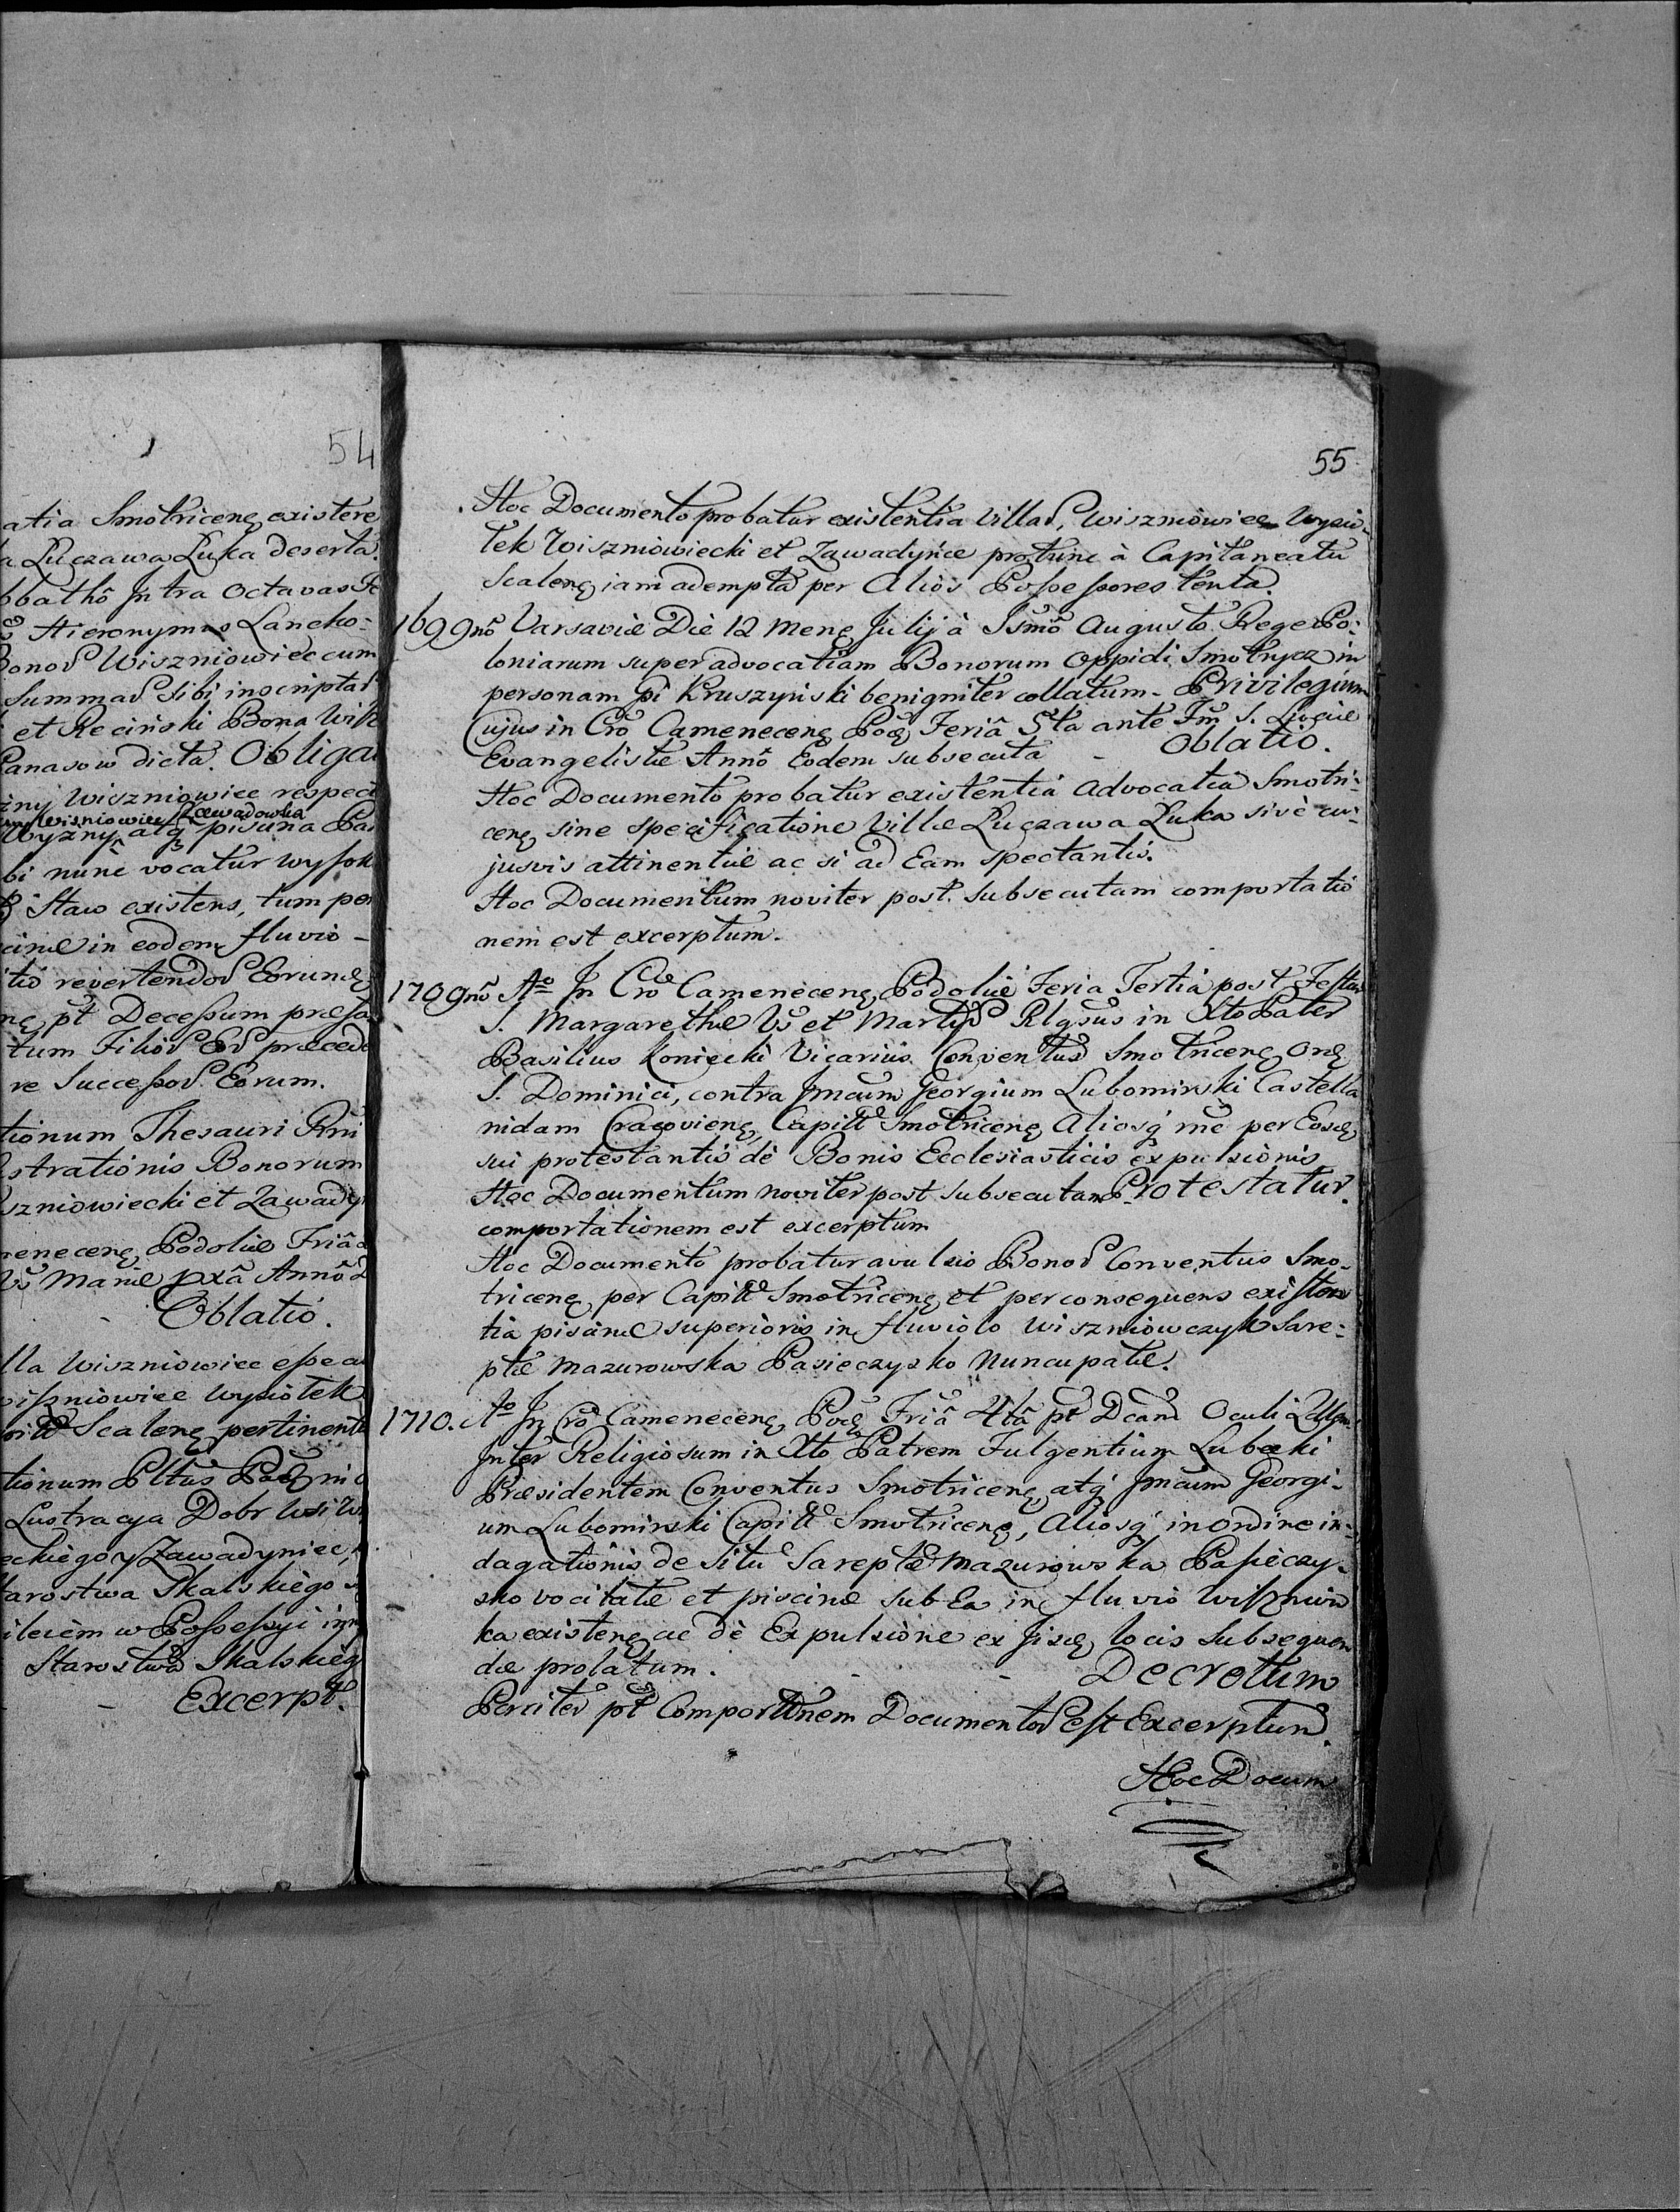 54
atia Smotricenę existere
a Luczawa Luka deserta.
bbathô Intra Octavas
Hieronymus Lancko-
Wiszniowiec cum
Summas Sibi inscriptas
et Reciński Bona
Panasow dicta. Obliga
Wiszniowiec respec
Wiszniowiec Lewadowka
Wyzny atq̃ piscina
bi nunc vocatur
Staw existens, tum
in eodem fluvio -
revertendor Eorund
p̃t Decessum
tum Filior præced
re Successor Eorum.
tionum Thesauri Rni
strationis Bonorum
szniowiecki et Zawady
menecenę Podoliæ Friâ
Mariæ pxâ Annô
Oblatio.
lla Wiszniowiec
Wiszniowiec Wysiołek
Scalenę pertinent
tionum
Lustracya Dobr Wsi
eckiego y Zawadyniec,
tarostwa Skalskiego
w Possessyi
Starostwa Skalskieg
- Excerpt.
55
Hoc Documento probatur existentia Villar, Wiszniowiec Wysio-
łek Wiszniowiecki et Zawadyńce protunc à Capitaneatu
Scalenę iam adempta per Alios Possessores tenta.
1699nô Varsaviæ Die 12 Menę Julij à Ssmô Augusto Rege Po-
loniarum super advocatiam Bonorum Oppidi Smotrycz in
personam Gi Kruszyński benigniter collatum - Privilegium
Cujus in Crô Camenecenę Podę Feriâ 5ta ante Fm S. Luciæ
Evangelistæ Annô Eodem subsecuta - Oblatio.
Hoc Documento probatur existentia Advocatia Smotri-
cenę sine specificatione Villæ Luczawa Luka sivè cu-
jusvis attinentiæ ac si ad Eam spectantis.
Hoc Documentum noviter post subsecutam comportatio
nem est excerptum.
1709nô Aô In Crô Camenecenę Podoliæ Feria Tertia post Festum
S. Margarethæ Vs et Martys Rlgsus in Xto Pater
Basilius Koniecki Vicarius Conventus Smotricenę Ordę
S. Dominici, contra Jmcum Georgium Lubomirski Castella
nidam Cracovienę, Capittm Smotricenę Aliosq̃ rñe per Eosdę
sui protestantis de Bonis Ecclesiasticis expulsionis
Hoc Documentum noviter post subsecutam Protestatur.
comportationem est excerptum
Hoc Documento probatur avulsio Bonor Conventus Smo-
tricenę per Capittm Smotricenę et per consequens existen
tia piscinæ superioris in fluviolo Wiszniowczyk Sare-
ptæ Mazurowska Pasieczysko Nuncupatæ.
1710. Aô In Crô Camenecenę Podę Friâ 4tâ pt Dcam Oculi
Inter Religiosum in Xto Patrem Fulgentium Lubecki
Præsidentem Conventus Smotricenę atq̃ Jmcum Georgi-
um Lubomirski Capittm Smotricenę, Aliosq̃ in Ordine in-
dagationis de Situ Sareptæ Mazurowska Pasieczy-
sko vocitatæ et piscinæ sub Ea in fluvio Wiszniow
ka existenę ac dè Expulsione ex Jisdę locis Subsequen
dæ prolatum. - - Decretum
Pariter pt Comporttnem Documentor Est Excerptum.
Hoc Docum